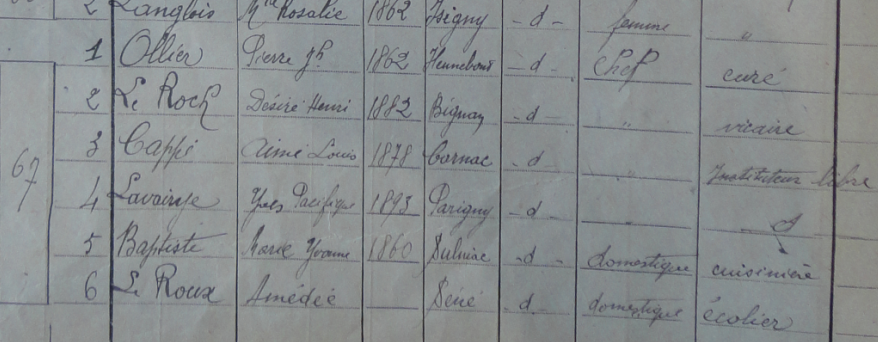 2 Langlois Mie Rosalie 1862 - d - femme "
1 Ollier Pierre Jh 1862 Hennebont - d - Chef curé
2 Le Roch Désiré Henri 1882 Bignan - d - " vicaire
3 Cappé Aimé Louis 1878 Carnac - d - " Instituteur libre
67 4 Yves Pacifique 1893 Parigny - d - " d
5 Baptiste Marie Yvonne 1860 Sulniac - d - domestique cuisinière
6 Le Roux Amédée Séné - d - domestique écolier